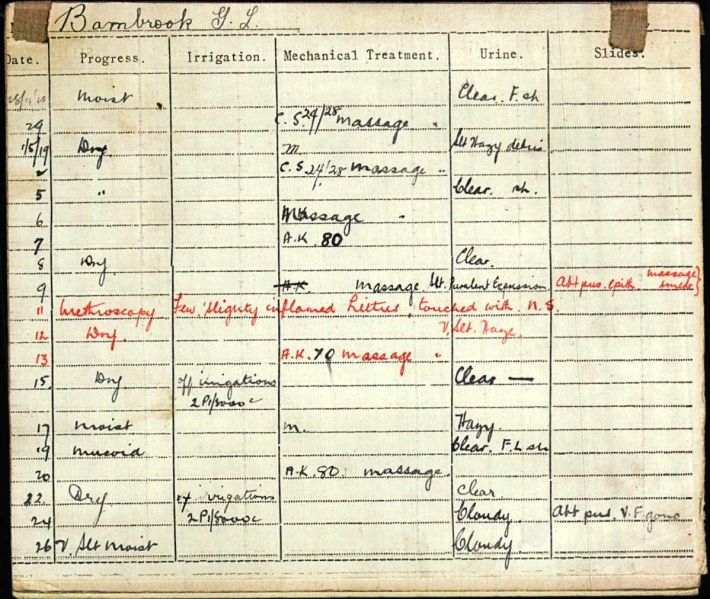 Bambrook G. L.
Date. Progress. Irrigation. Mechanical Treatment. Urine. Slides.
Moist Clear. F. sh
29 C. S. 24/28 massage "
1/5/19 Dry. M. Slt Hazy debris
2 C. S. 24/28 massage "
5 " Clear. sh.
6 Massage "
7 A.K. 80
8 Dry Clear.
9 A.K. massage. Slt. Purulent Expression Abt pus. epith. massage smear}
11 Urethroscopy Few slightly inflamed Littres, touched with N.S.
12 Dry. V. Slt. Haze.
13 A.K. 70 massage "
15 Dry off irrigations Clear —
2 P1/8000 c
17 Moist M. Hazy.
19 Mucoid Clear. F. L sh
20 A.K. 80. massage.
22 Dry irrigations Clear
24 2 P1/8000 c Cloudy. Abt pus. V. F. gono
26 V. Slt Moist Cloudy.